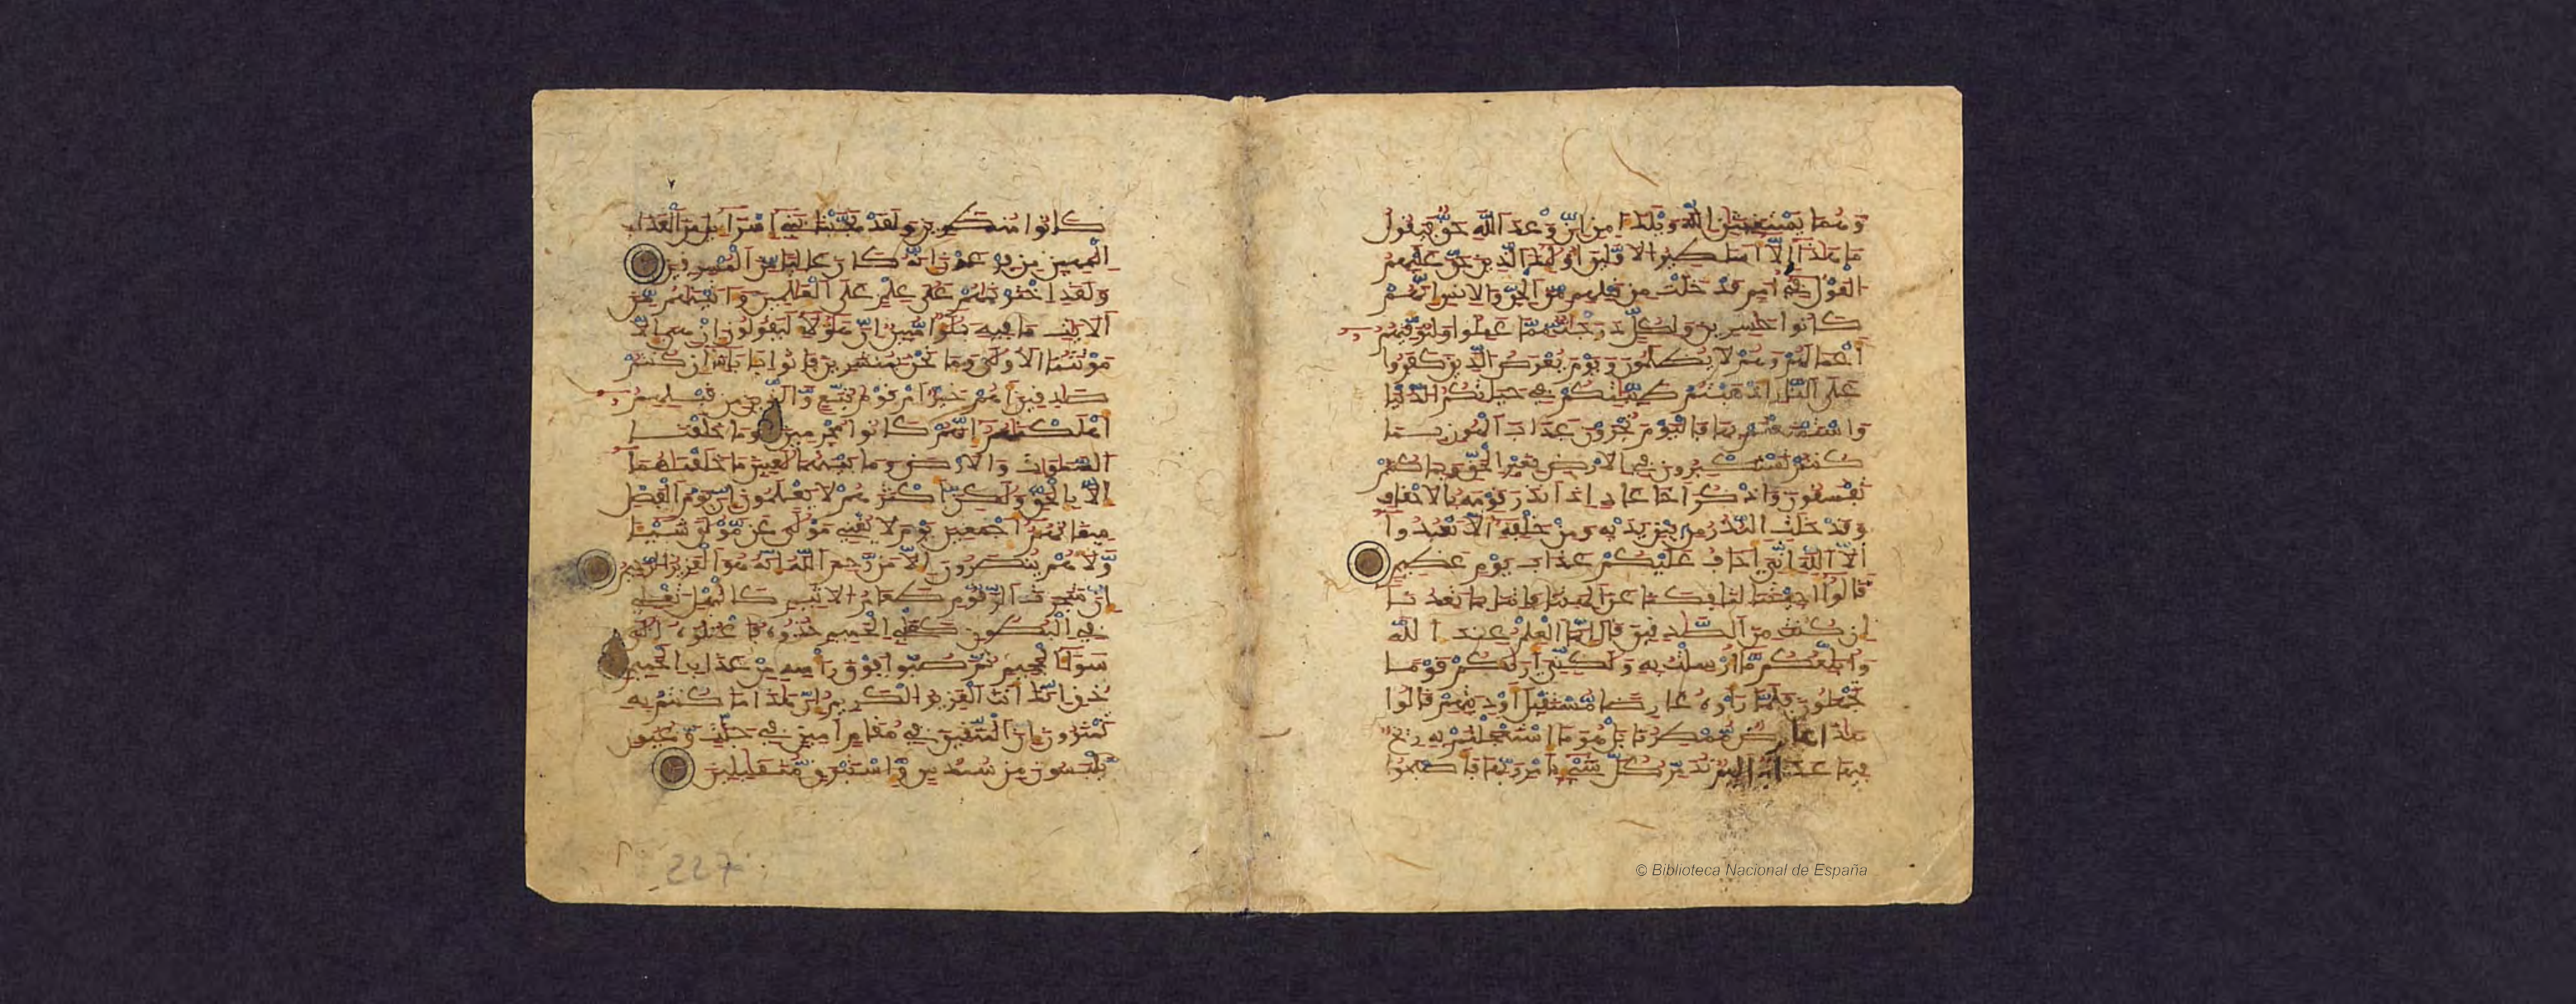 وهما يستغيثن الله ويلك امن ان وعد الله حق فيقول
ما هذا الا اسطير الاولين اولئك الذين حق عليهم
القول في امم قد خلت من قبلهم من الجن والانس انهم
كانوا خسرين ولكل درجت مما عملوا ولنوفيهم
اعملهم وهم لا يظلمون ويوم يعرض الذين كفروا
على النار اذهبتم طيبتكم في حياتكم الدنيا
واستمتعتم بها فاليوم تجزون عذاب الهون بما
كنتم تستكبرون في الارض بغير الحق وبما كنتم
تفسقون واذكر اخا عاد اذ انذر قومه بالاحقاف
وقد خلت النذر من بين يديه ومن خلفه الا تعبدوا
الا الله اني اخاف عليكم عذاب يوم عظيم
قالوا اجئتنا لتافكنا عن الهتنا فاتنا بما تعدنا
ان كنت من الصدقين قال انما العلم عند الله
وابلغكم ما ارسلت به ولكني اريكم قوما
تجهلون فلما راوه عارضا مستقبل اوديتهم قالوا
هذا عارض ممطرنا بل هو ما استعجلتم به ريح
فيها عذاب اليم تدمر كل شيء بامر ربها فاصبحوا
كانوا منظرين ولقد نجينا بني اسراءيل من العذاب
المهين من فرعون انه كان عاليا من المسرفين
ولقد اخترنهم على علم على العلمين واتينهم من
الايت ما فيه بلؤا مبين ان هؤلاء ليقولون ان هي الا
موتتنا الاولى وما نحن بمنشرين فاتوا بابائنا ان كنتم
صدقين اهم خير ام قوم تبع والذين من قبلهم
اهلكنهم انهم كانوا مجرمين وما خلقنا
السموت والارض وما بينهما لعبين ما خلقنهما
الا بالحق ولكن اكثرهم لا يعلمون ان يوم الفصل
ميقاتهم اجمعين يوم لا يغني مولى عن مولى شيئا
ولا هم ينصرون الا من رحم الله انه هو العزيز الرحيم
ان شجرت الزقوم طعام الاثيم كالمهل تغلي
في البطون كغلي الحميم خذوه فاعتلوه الى
سواء الجحيم ثم صبوا فوق راسه من عذاب الحميم
ذق انك انت العزيز الكريم ان هذا ما كنتم به
تمترون ان المتقين في مقام امين في جنت وعيون
يلبسون من سندس واستبرق متقبلين
227
© Biblioteca Nacional de España